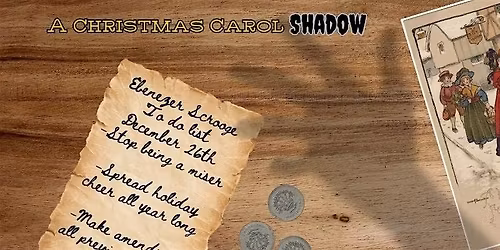 A Christmas Carol SHADOW
Ebenezer Scrooge
To do list
December 26th
-Stop being a miser
-Spread holiday
cheer all year long
-Make amends
all previ